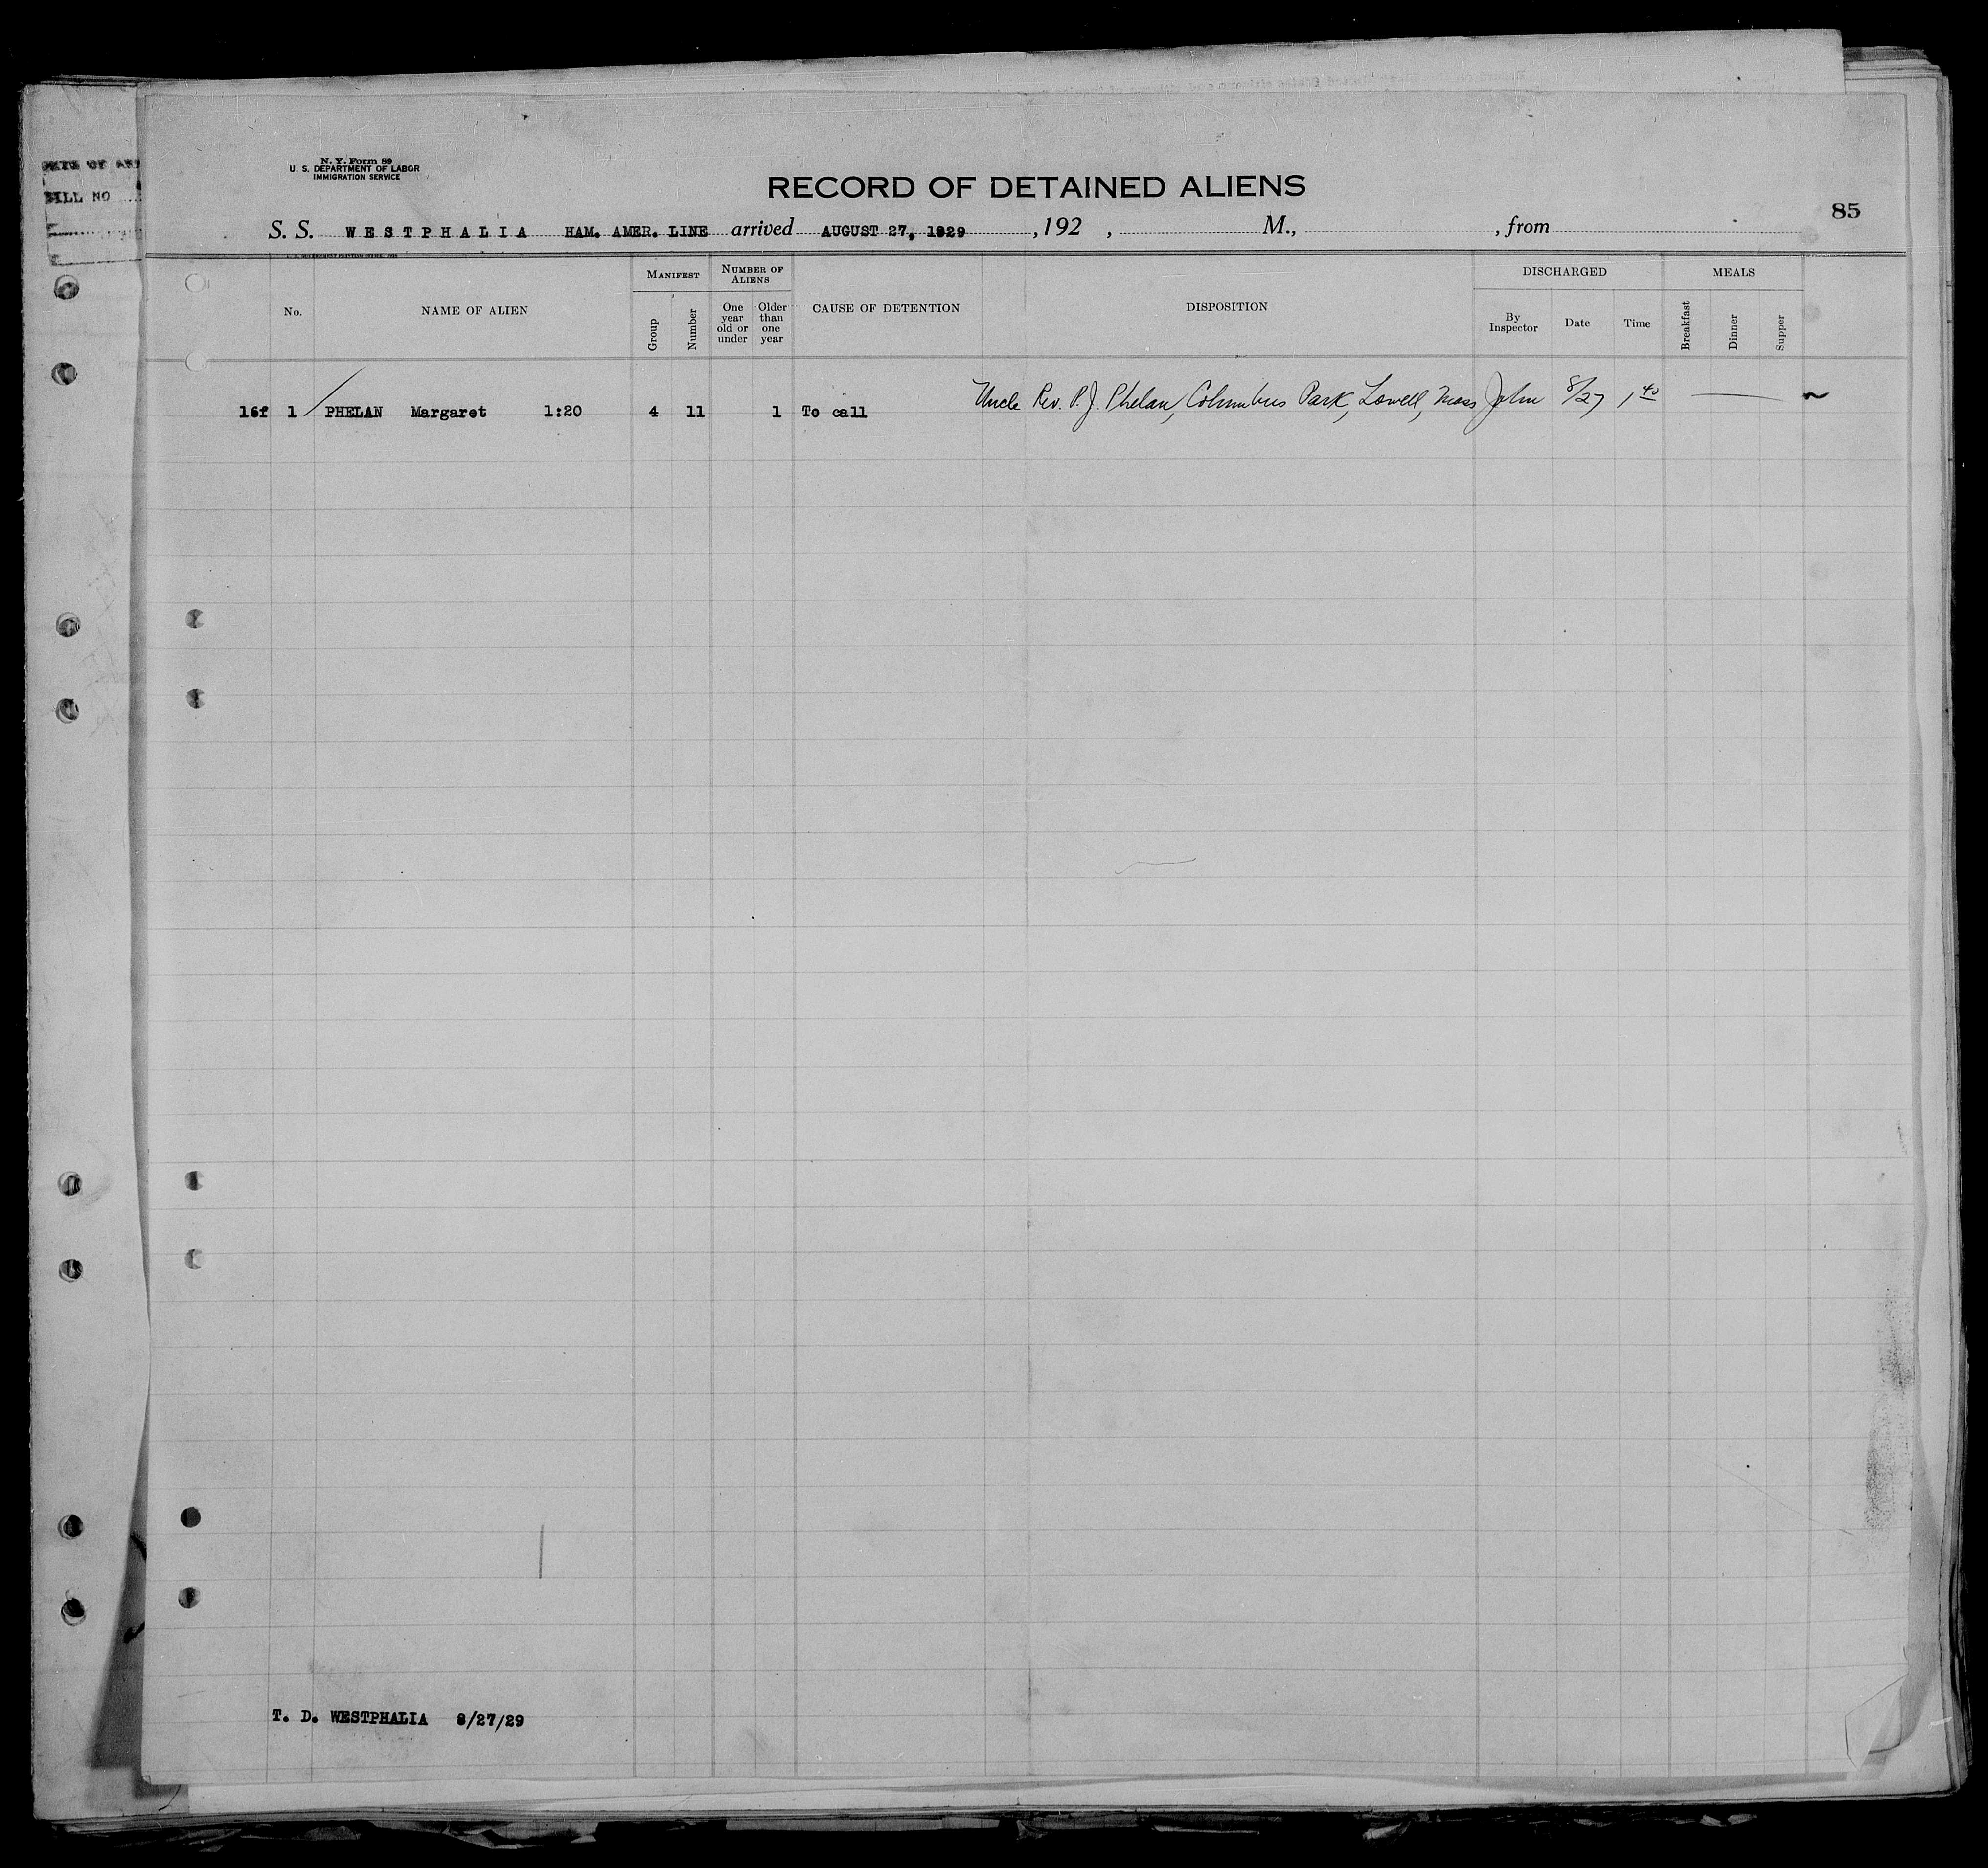 BILL NO
N. Y. Form 89
U. S. DEPARTMENT OF LABOR
IMMIGRATION SERVICE
RECORD OF DETAINED ALIENS
85
S. S. WESTPHALIA HAM. AMER. LINE arrived AUGUST 27, 1929, 192 , M., , from
No.
NAME OF ALIEN
MANIFEST
Group
Number
NUMBER OF ALIENS
One year old or under
Older than one year
CAUSE OF DETENTION
DISPOSITION
DISCHARGED
By Inspector
Date
Time
MEALS
Breakfast
Dinner
Supper
16f 1 PHELAN Margaret 1:20 4 11 1 To call Uncle Rev. P. J. Phelan, Columbus Park, Lowell, Mass John 8/27 1 40
T. D. WESTPHALIA 8/27/29